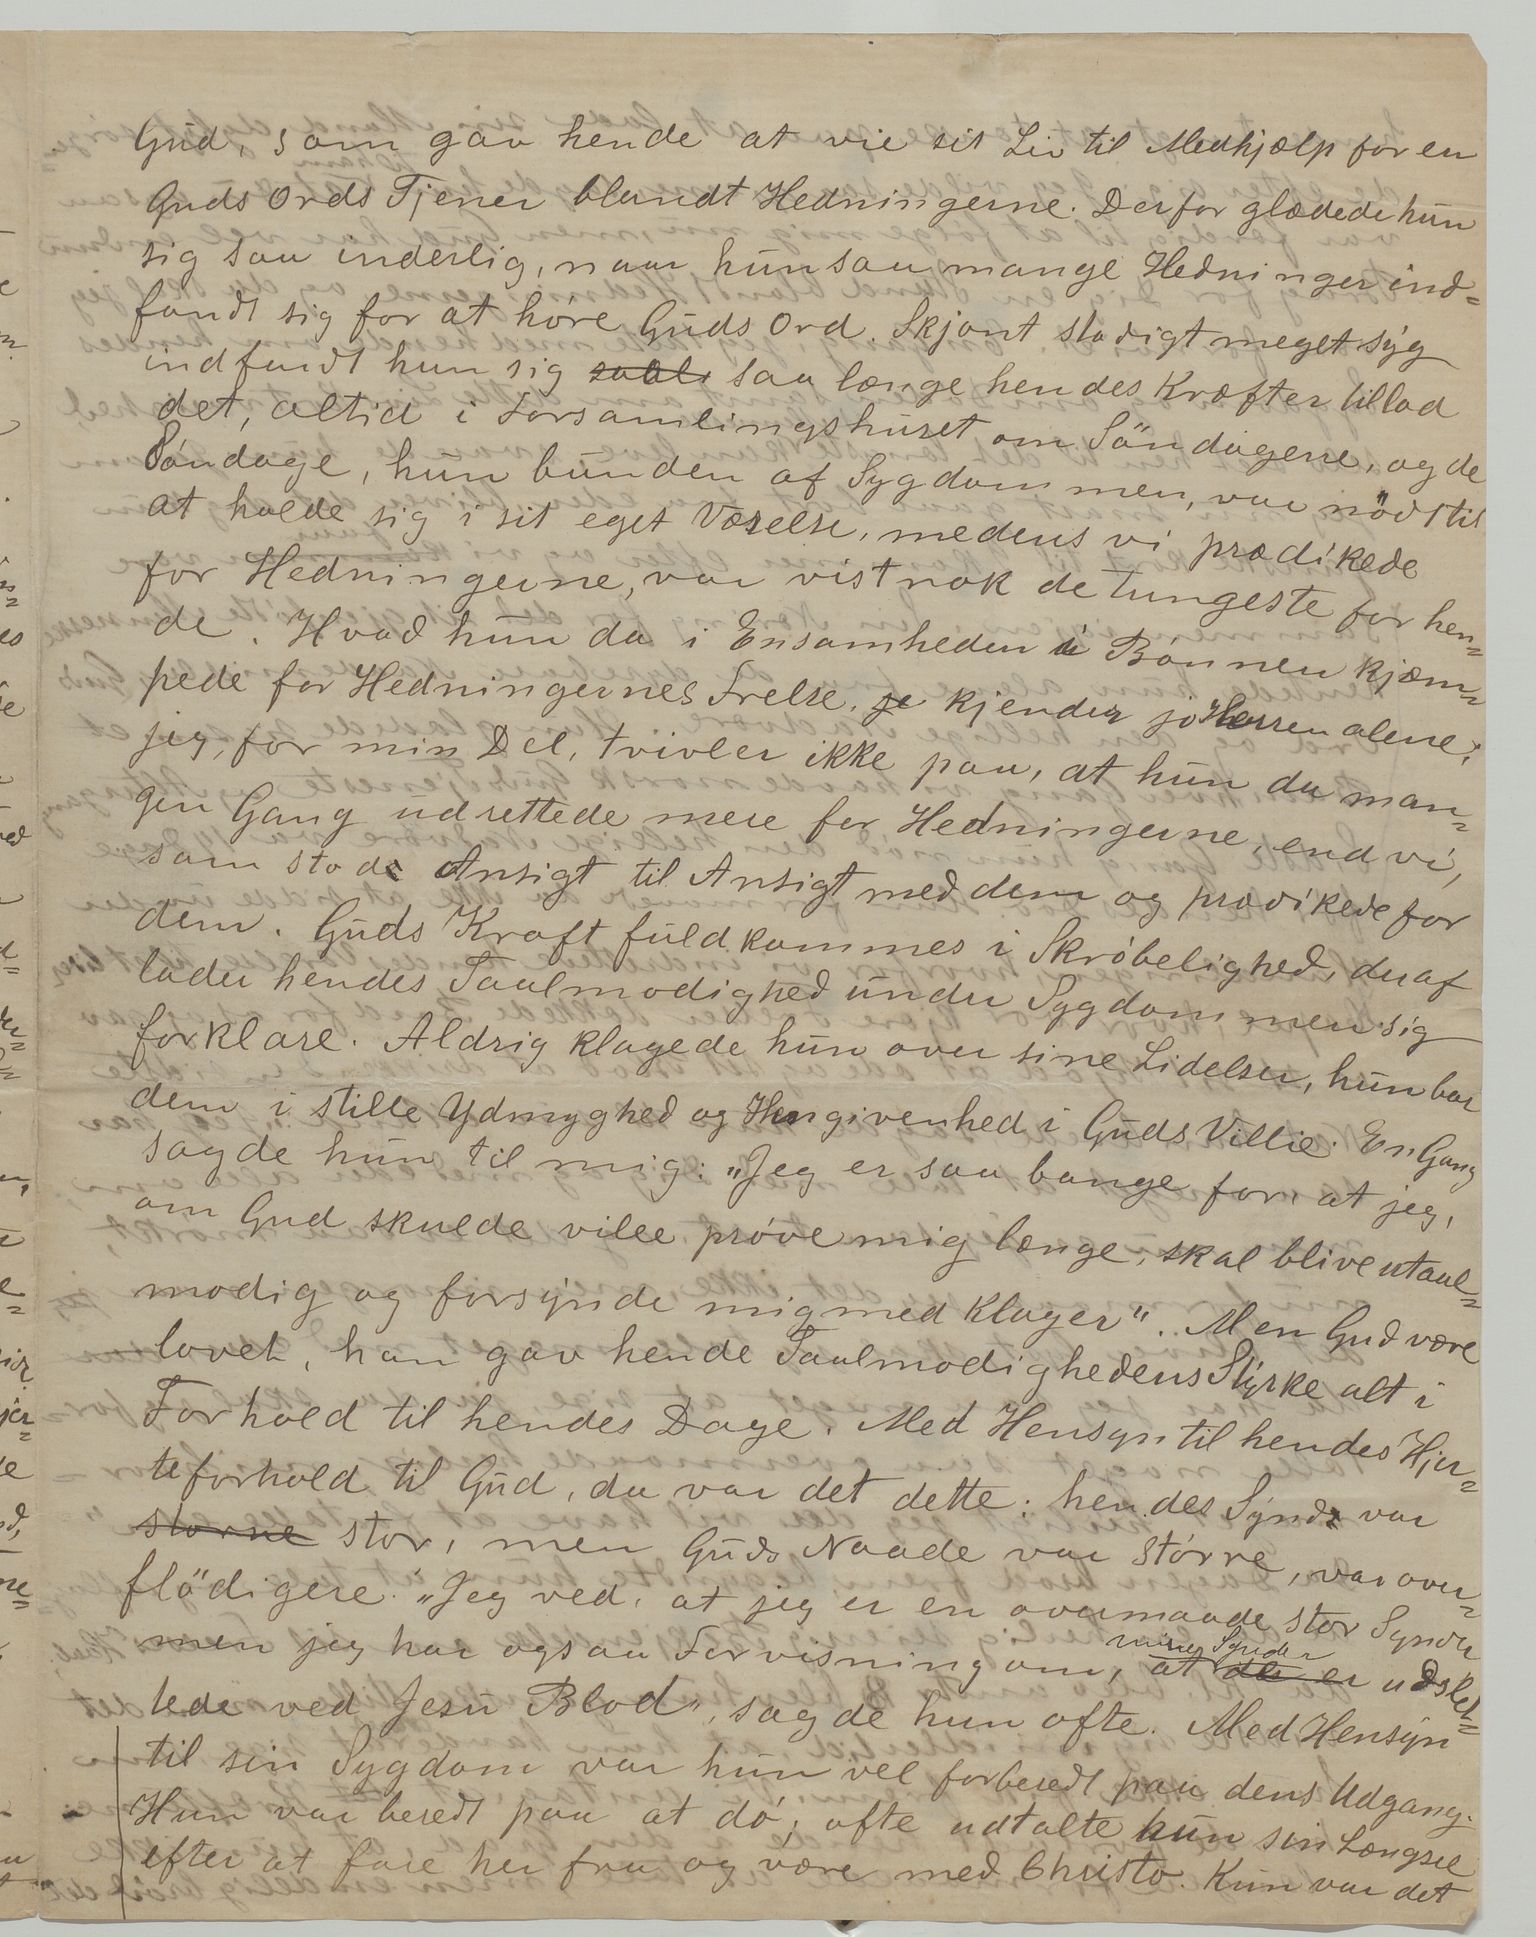 Gud, som gav hende at vie sit Liv til Medhjælp for en
Guds Ords Tjener blandt Hedningerne. Derfor glædede hun
sig saa inderlig, naar hun saa mange Hedninger ind=
fandt sig for at høre Guds Ord. Skjønt stadigt meget syg
indfandt hun sig saa længe hendes Kræfter tillod
det, altid i Forsamlingshuset om Söndagene, og de
Søndage, hun bunden af Sygdommen, var nödt til
at holde sig i sit eget Værelse, medens vi prædikede
for Hedningerne, var vist nok de tungeste for hen=
de. Hvad hun da i Ensamheden i Bønnen kjæm=
pede for Hedningernes Frelse, kjender jo Herren alene;
jeg, for min Del, tvivler ikke paa, at hun da man=
gen Gang udrettede mere for Hedningerne, end vi,
som stode Ansigt til Ansigt med dem og prædikede for
dem. Guds Kraft fuldkommes i Skrøbelighed, deraf
lader hendes Taalmodighed under Sygdommen sig
forklare. Aldrig klagede hun over sine Lidelser, hun bar
dem i stille Ydmyghed og Hengivenhed i Guds Villie. En Gang
sagde hun til mig: „Jeg er saa bange for, at jeg,
om Gud skulde ville prøve mig længe, skal blive utaal=
modig og forsynde mig med Klager“. Men Gud være
lovet, han gav hende Taalmodighedens Styrke alt i
Forhold til hendes Dage. Med Hensyn til hendes Hjer=
teforhold til Gud, da var det dette: hendes Synd var
storne stor, men Guds Naade var større, var over=
flödigere. „Jeg ved, at jeg er en overmaade stor Synder
men jeg har ogsaa Forvisning om, at der er mine Synder udslet=
tede ved Jesu Blod“, sagde hun ofte. Med Hensyn
til sin Sygdom var hun vel forberedt paa dens Udgang.
Hun var beredt paa at dø; ofte udtalte hun sin Længsel
efter at fare her fra og være med Christo. Kun var det